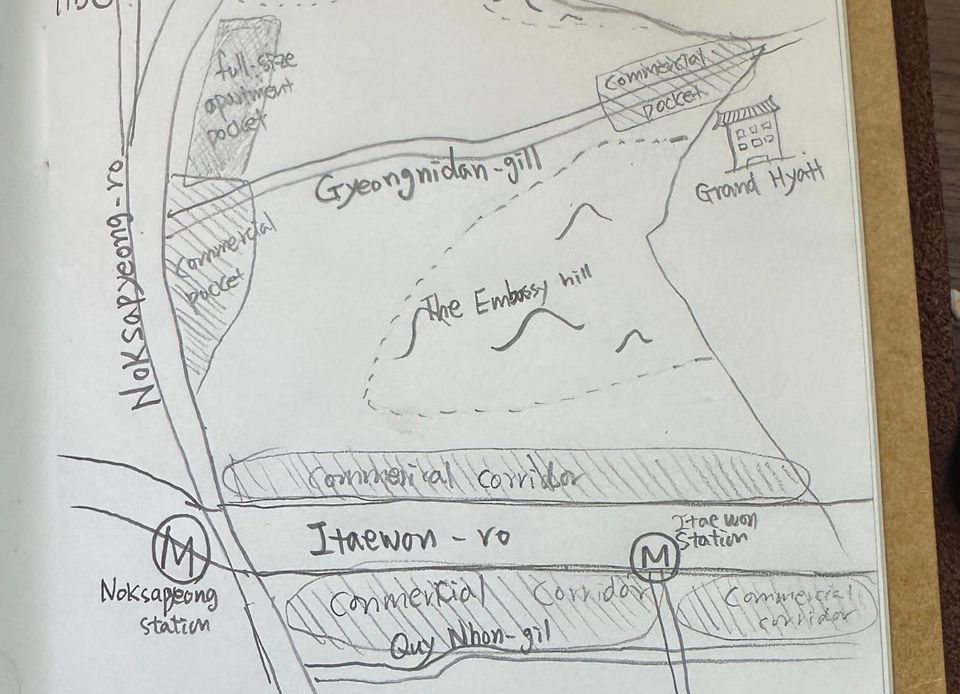 full-size
apartment
pocket
commercial
pocket
Grand Hyatt
Gyeongnidan-gill
Noksapyeong-ro
commercial
pocket
The Embassy hill
Commerical corridor
Itaewon-ro
Itaewon
Station
M
M
Noksapeong
station
Commercial Corridor
Commercial
corridor
Quy Nhon-gil